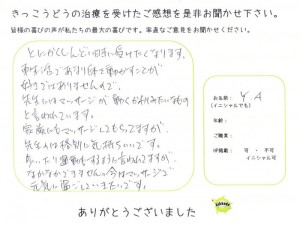 きっこうどうの治療を受けたご感想を是非お聞かせ下さい。
皆様の喜びの声が私たちの最大の喜びです。率直なご意見をお聞かせください。
とにかくしんどい時に受けたくなります。
動くのが
好きではありませんので、
先生にはマッサージが動くかわりみたいなもの
と言われています。
家族にもマッサージしてもらってますが
先生のは格別に気持ちいいです。
運動もするように言われますが
なかなかできませんので今はマッサージで
元気に過ごしていきたいです。
お名前: Y A
(イニシャルでも)
年齢:
ご職業:
HP掲載: 可 ・ 不可
イニシャル可
ありがとうございました